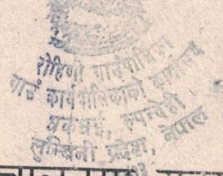 रोहिणी गाउँपालिका
गाउँ कार्यपालिकाको कार्यालय
रुपन्देही
लुम्बिनी प्रदेश, नेपाल